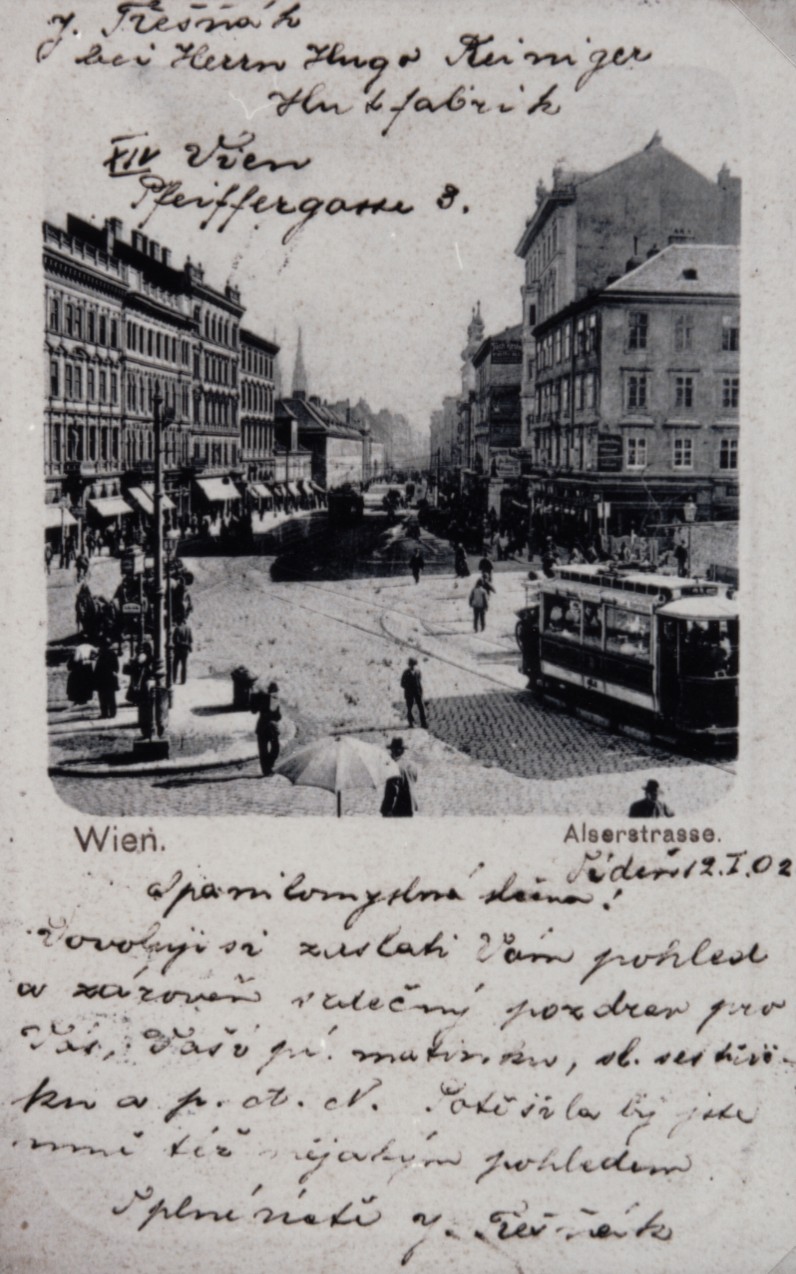 y. Třešňák
bei Herrn Hugo Reiniger
Hutfabrik
XIV Wien
Pfeiffergasse 3.
Wien.
Alserstrasse.
Vídeň 12.I.02
Spanilomyslná slečno!
Dovoluji si zaslati Vám pohled
a zároveň srdečný pozdrav pro
Vás, Vaší pí. matinku, sl. sestřič-
ku a p. A. N. Potěšila by jste
mně též nějakým pohledem
S plné úctě y. Třešňák